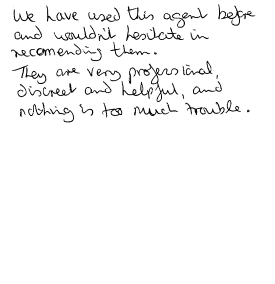 We have used this agent before
and wouldn't hesitate in
recomending them.
They are very professional,
discreet and helpful, and
nothing is too much trouble.